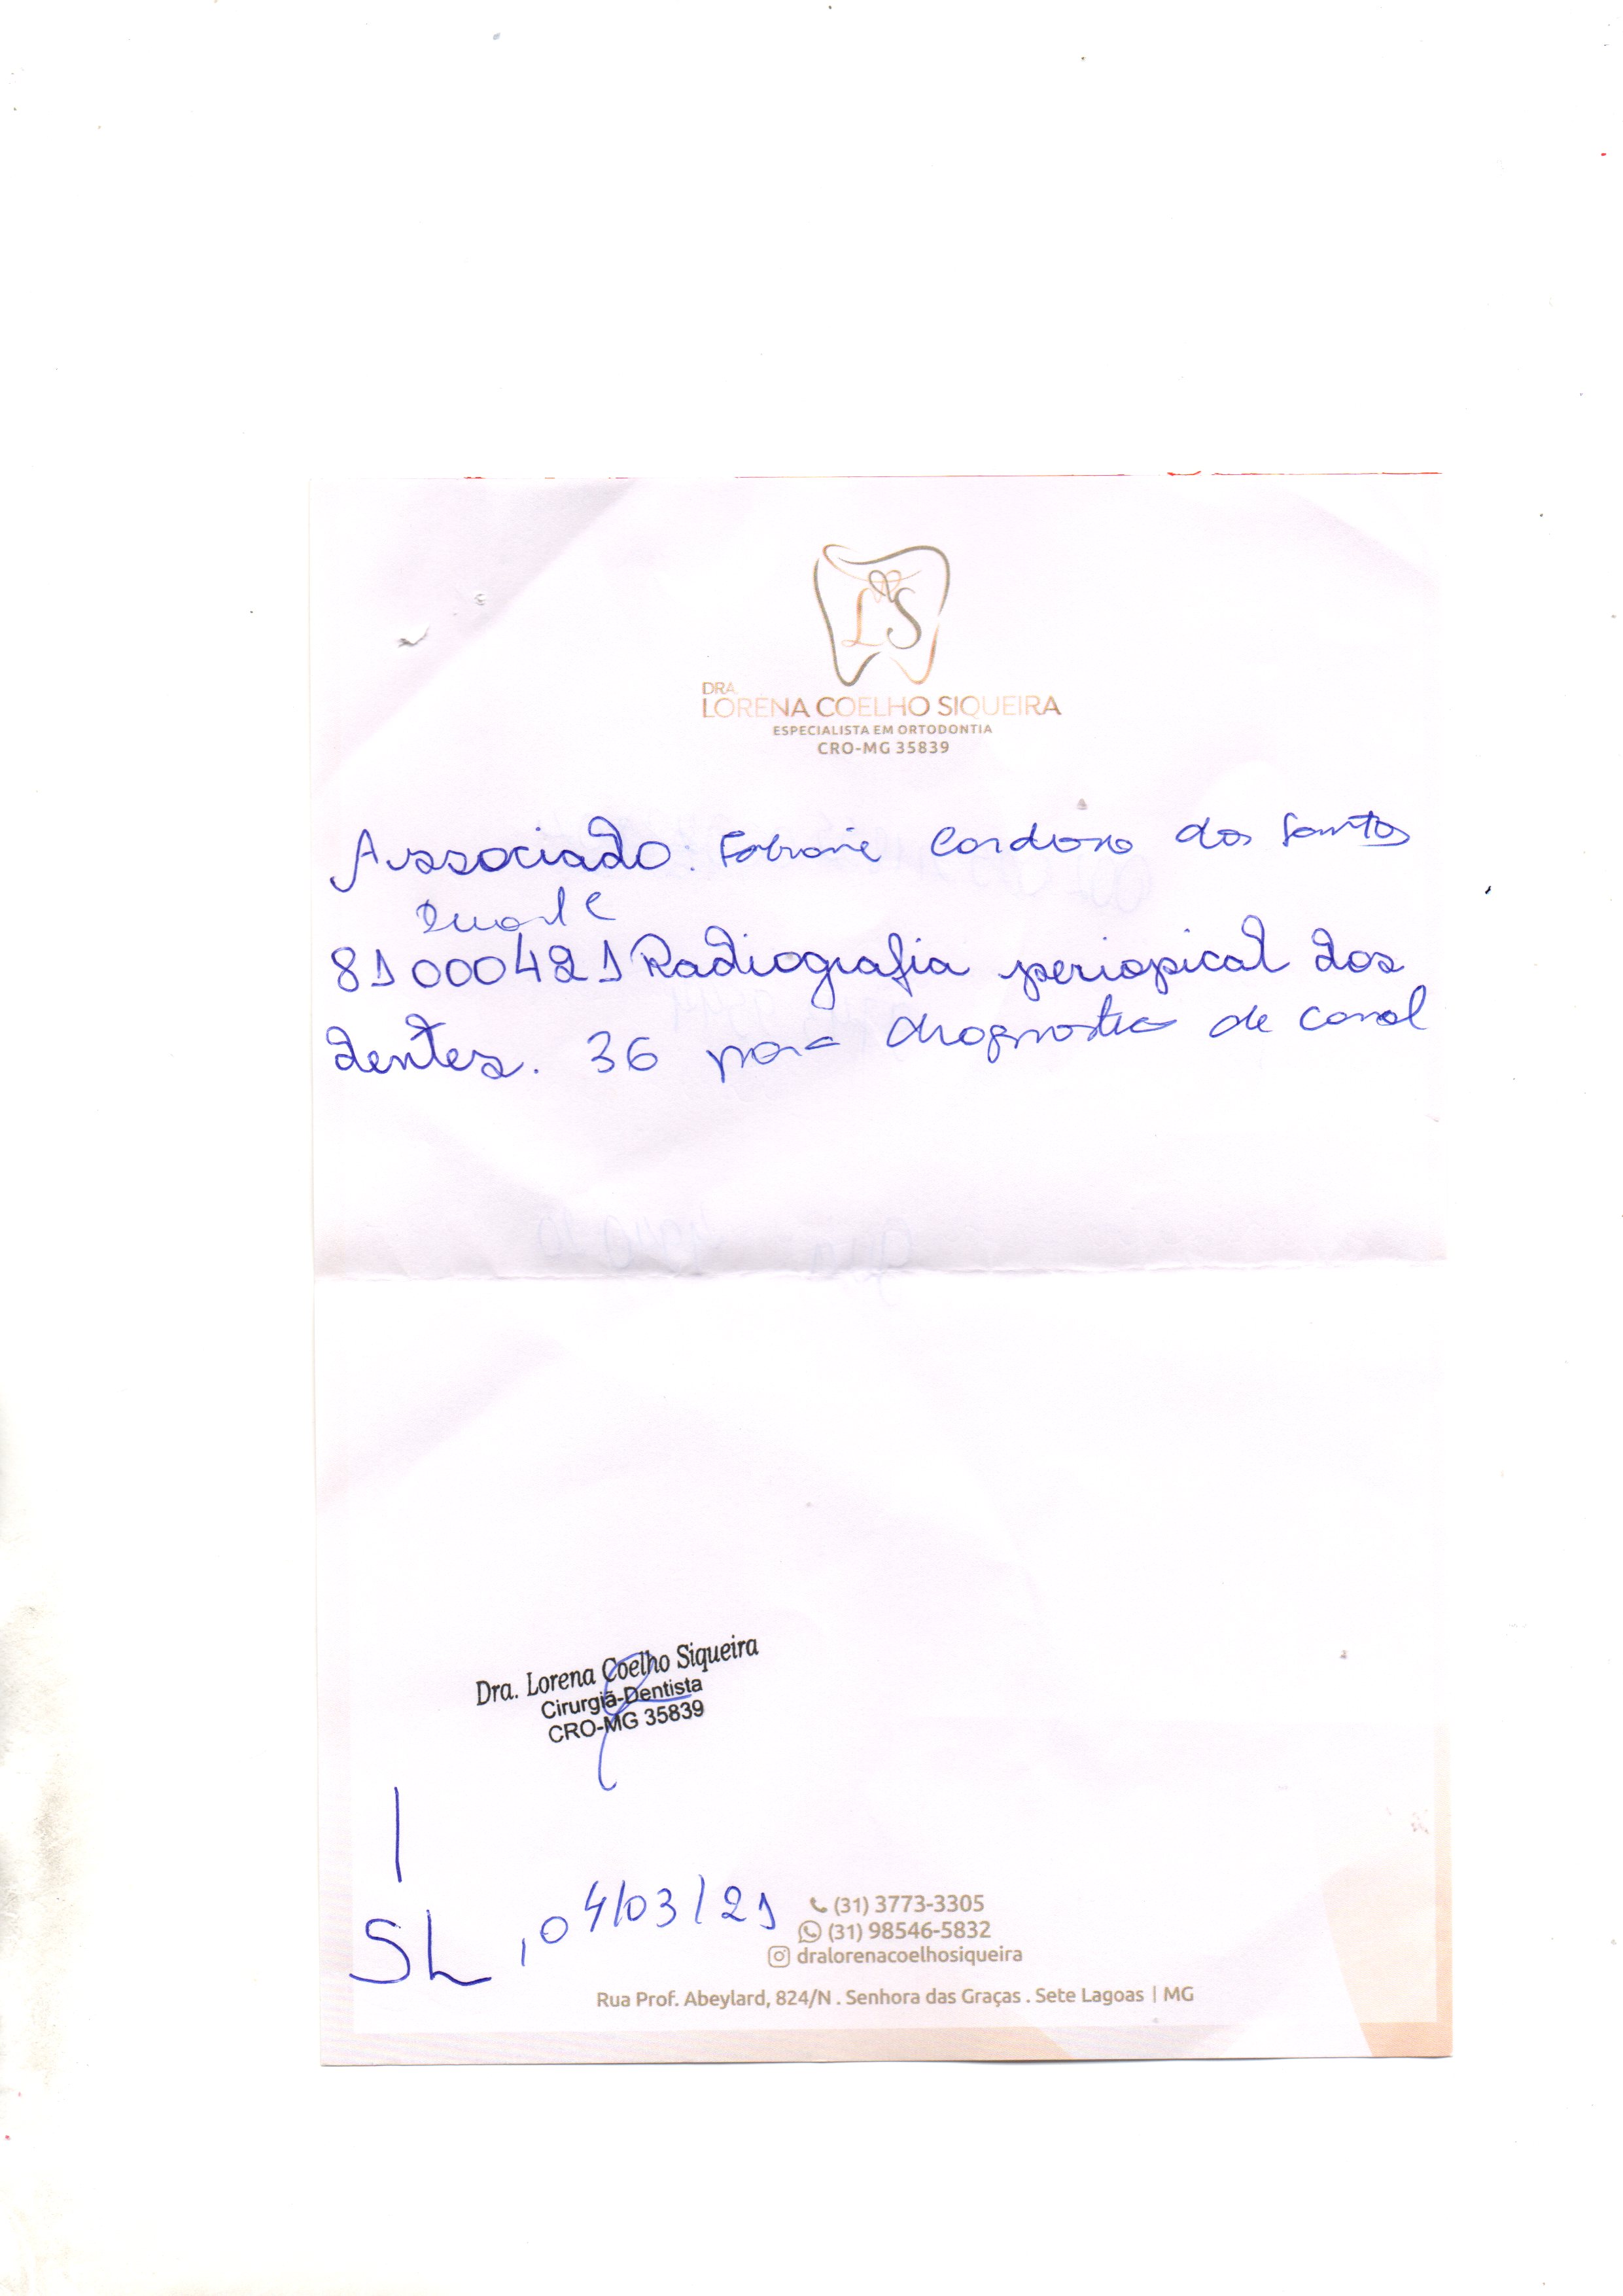 LS
DRA.
LORENA COELHO SIQUEIRA
ESPECIALISTA EM ORTODONTIA
CRO-MG 35839
Associado: Fabiane Cardoso dos Santos
Duarte
81000421 Radiografia periapical dos
dentes. 36 para diagnostico de canal
Dra. Lorena Coelho Siqueira
Cirurgiã-Dentista
CRO-MG 35839
SL, 04/03/21
(31) 3773-3305
(31) 98546-5832
dralorenacoelhosiqueira
Rua Prof. Abeylard, 824/N . Senhora das Graças . Sete Lagoas | MG